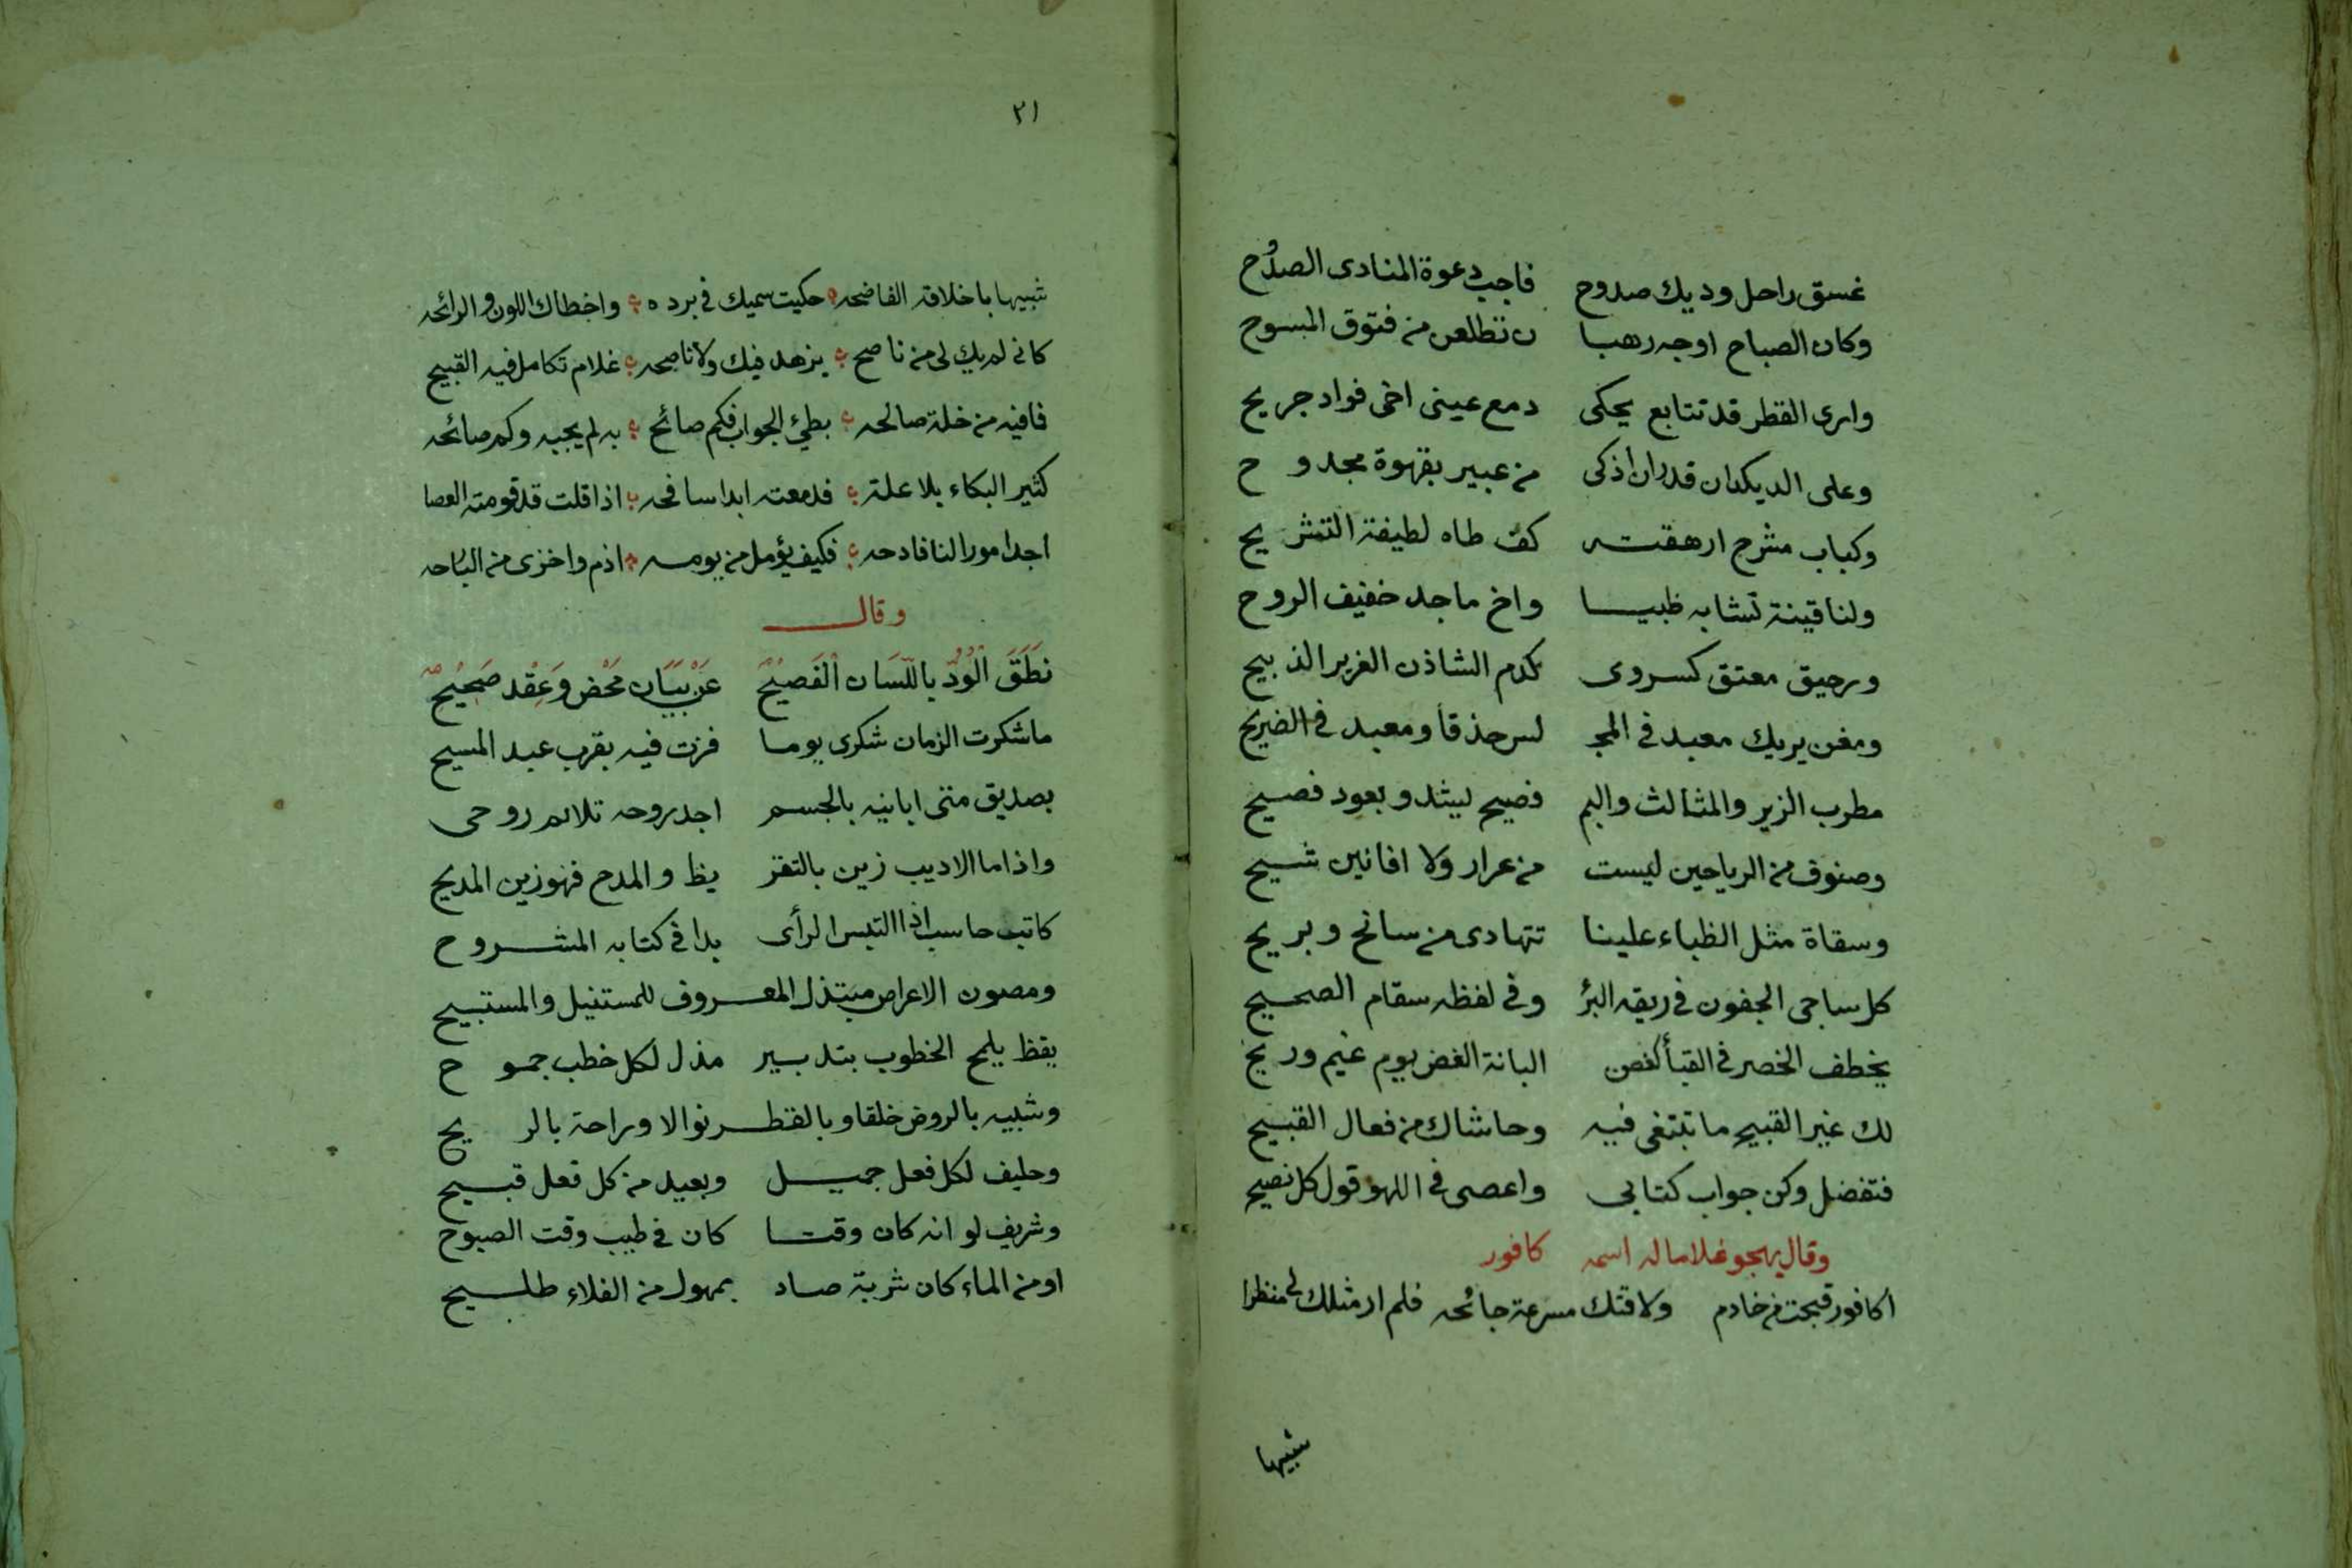 غسق راحل وديك صدوح فاجب دعوة المنادى الصدُوح
وكان الصباح اوجه رهبا ن تطلعن من فتوق المسوح
وارى القطر قد تتابع يحكى دمع عينى اخى فواد جريح
وعلى الديكدان قدران اذكى من عبير بقهوة مجدو ح
وكباب مشرح ارهقته كف طاه لطيفة التشريح
ولنا قينة تشابه ظبيا واخ ماجد خفيف الروح
ورحيق معتق كسروى كدم الشاذن الغرير الذبيح
ومغن يريك معبد فى المجـ لس حذقا ومعبد فى الضريح
مطرب الزير والمثالث والبم فصيح ليشدو بعود فصيح
وصنوف من الرياحين ليست من عرار ولا افانين شيح
وسقاة مثل الظباء علينا تتهادى من سانح وبريح
كل ساجى الجفون فى ريقه البرْ وفى لفظه سقام الصحيح
يخطف الخصر فى القبأ كغصن البانة الغض يوم غيم وريح
لك غير القبيح ما تبتغى فيه وحاشاك من فعال القبيح
فتفضل وكن جواب كتابى واعصى فى اللهو قول كل نصيح
وقال يهجو غلاما له اسمه كافور
اكافور قبحت من خادم ولاقتك مسرعة جائحه فلم ار مثلك لى منظرا
شبيها
٢١
شبيها باخلاقه الفاضحه حكيت سميك فى برده واخطاك اللون والرائحه
كانى لم يك لى من ناصح يزهد فيك ولا ناصحه غلام تكامل فيه القبيح
فافيه من خلة صالحه بطئ الجواب فكم صائح به لم يجبه وكم صائحه
كثير البكاء بلا علة فدمعته ابدا سافحه اذا قلت قد قومته العصا
اجد امورا لنا فادحه فكيف يؤمل من يومه اذم واخزى من البارحه
وقال
نَطَقَ الْوُدّ باللّسَان الْفَصِيْح عَنْ بيَان محَض وَعِقْد صَحِيْح
ما شكرت الزمان شكرى يوما فزت فيه بقرب عبد المسيح
بصديق متى اباينه بالجسم اجد روحه تلائم روحى
واذا ما الاديب زين بالتقر يظ والمدح فهو زين المديح
كاتب حاسب اذا التبس الرأى بدا فى كتابه المشروح
ومصون الاعراض مبتذل المعروف للمستنيل والمستبيح
يقظ يلمح الخطوب بتدبير مذل لكل خطب جمو ح
وشبيه بالروض خلقا وبالقطر نوالا وراحة بالر يح
وحليف لكل فعل جميل وبعيد من كل فعل قبيح
وشريف لو انه كان وقتا كان فى طيب وقت الصبوح
او من الماء كان شربة صاد بمهول من الفلاء طليح